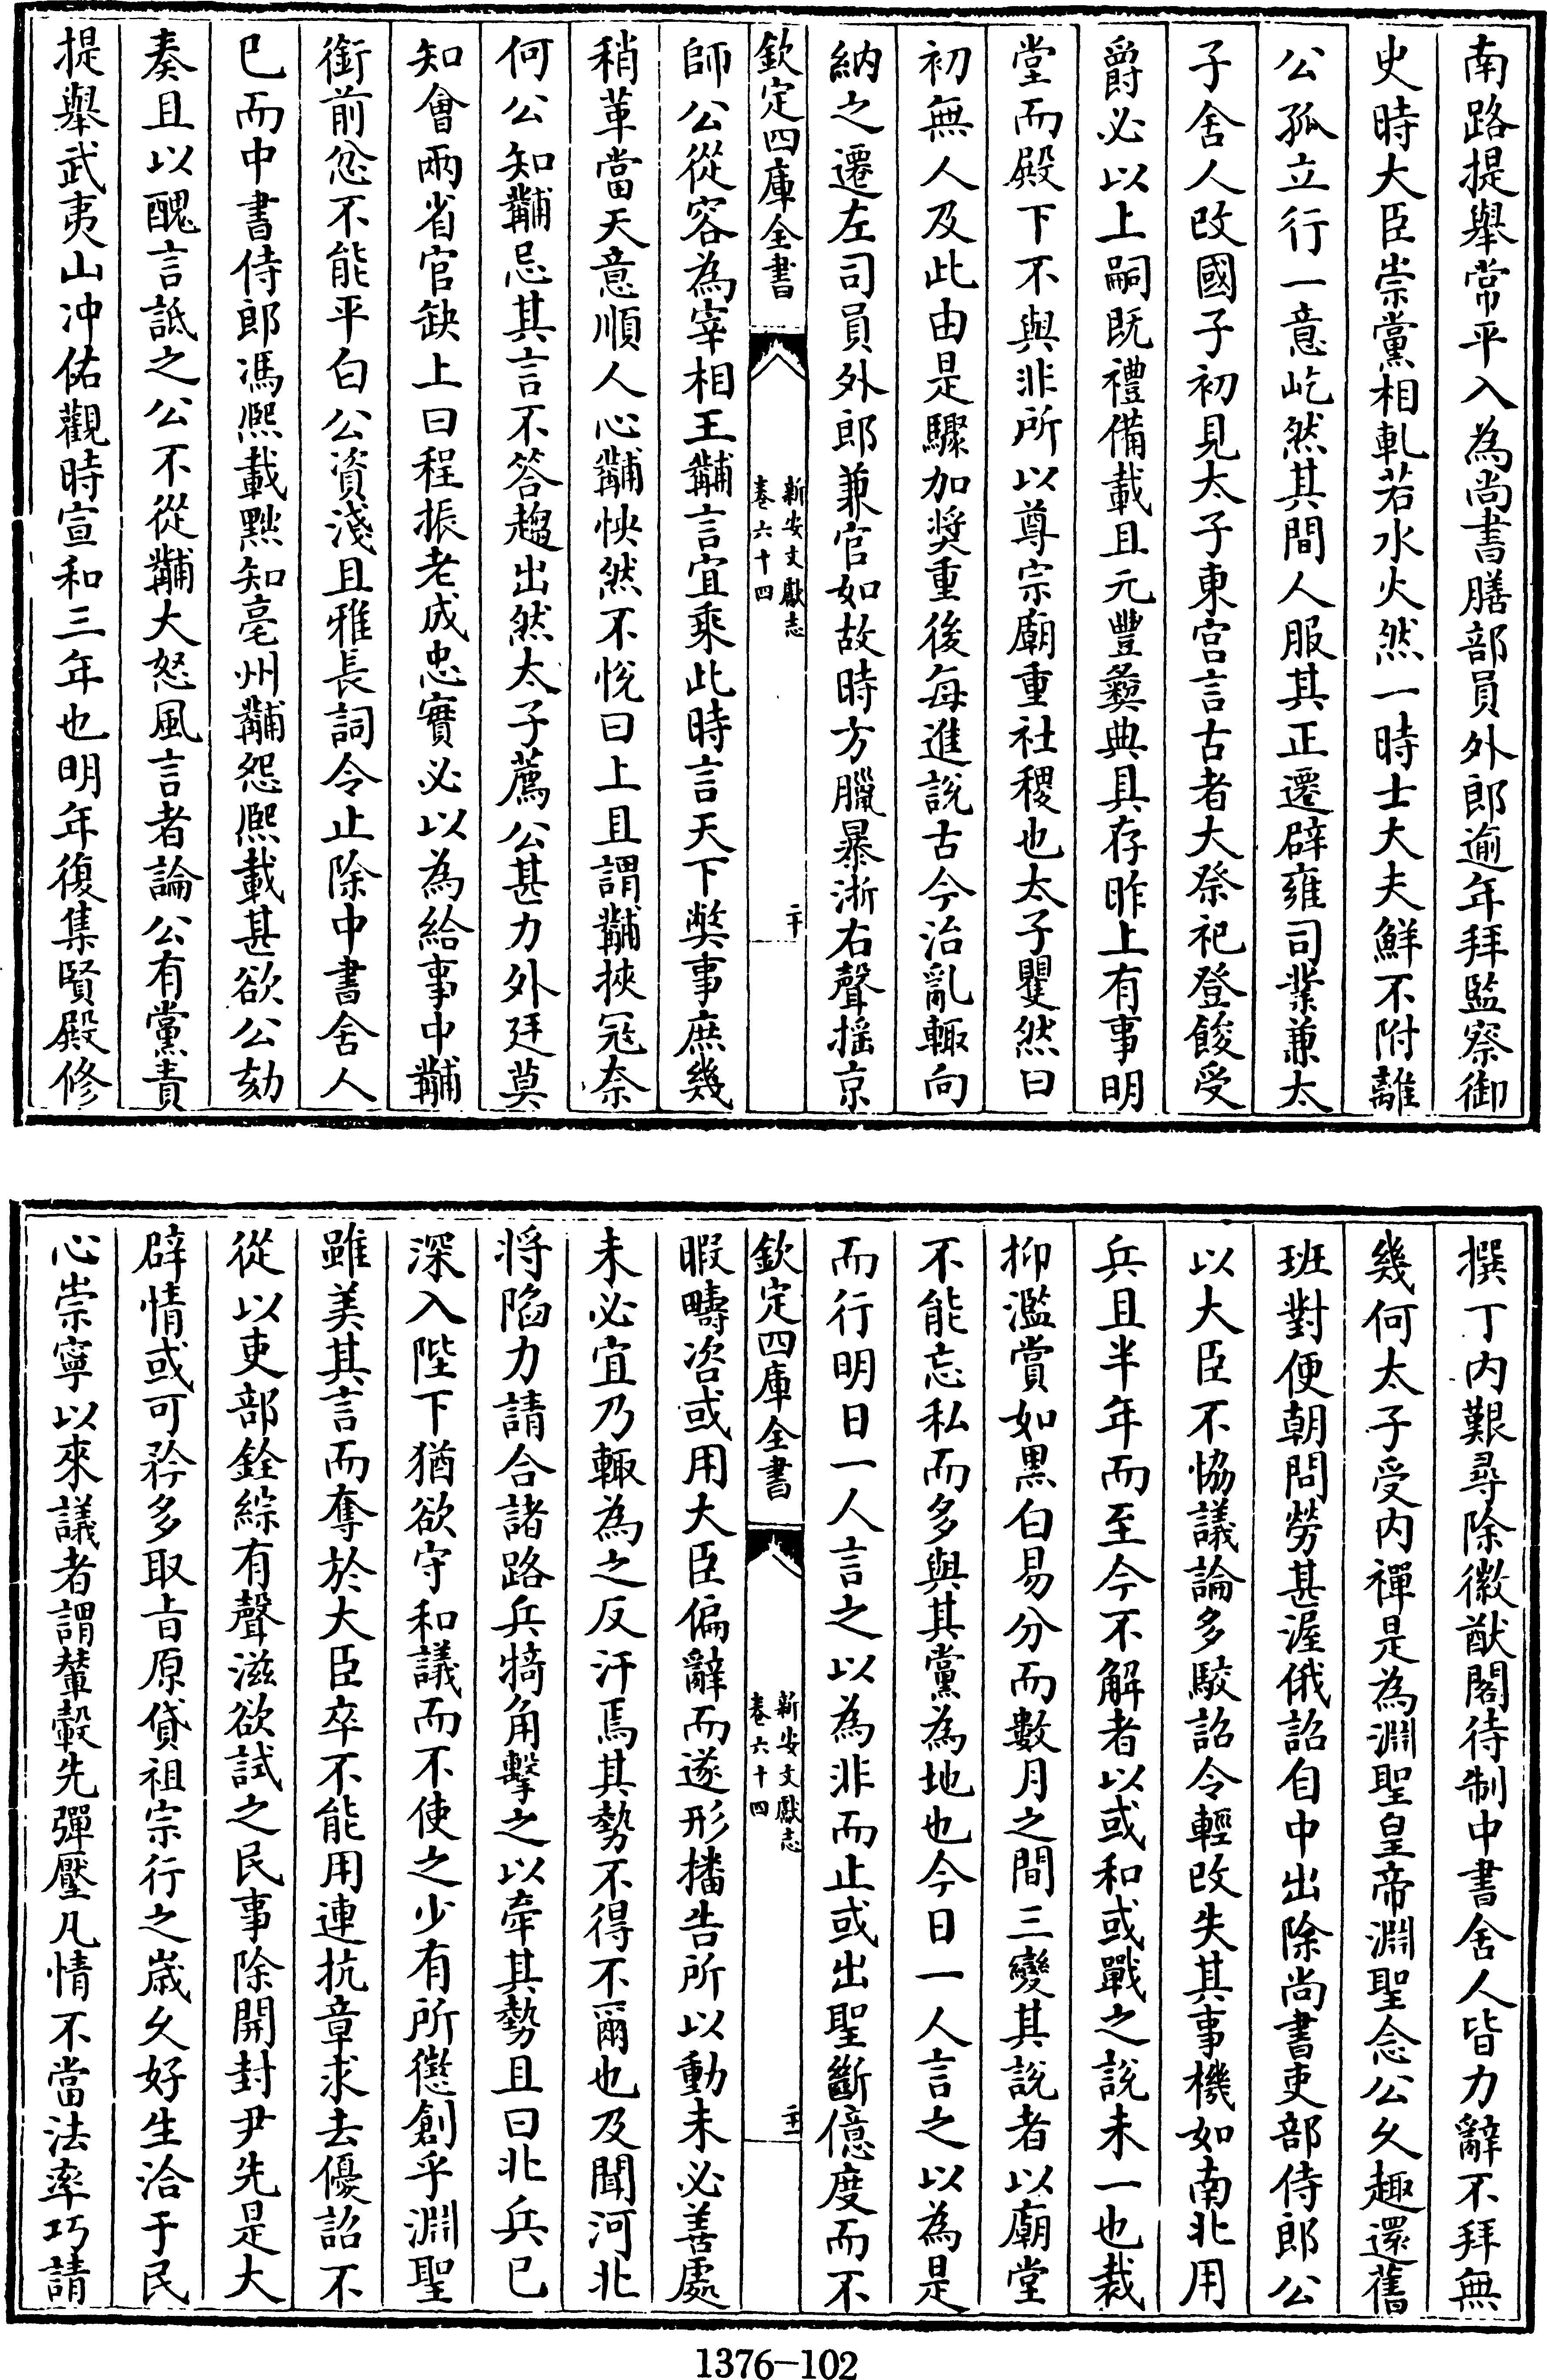 南路提舉常平入為尚書膳部員外郎逾年拜監察御
史時大臣崇黨相軋若水火然一時士大夫鮮不附離
公孤立行一意屹然其間人服其正遷辟雍司業兼太
子舍人改國子初見太子東宫言古者大祭祀登餕受
爵必以上嗣既禮備載且元豐彝典具存昨上有事明
堂而殿下不與非所以尊宗廟重社稷也太子瞿然曰
初無人及此由是驟加奨重後每進說古今治亂輒向
納之遷左司員外郎兼官如故時方臘暴浙右聲摇京
欽定四庫全書
新安文獻志
卷六十四
二十
師公從容為宰相王黼言宜乘此時言天下弊事庶幾
稍革當天意順人心黼怏然不悅曰上且謂黼挾冦奈
何公知黼忌其言不答趨出然太子薦公甚力外廷莫
知會兩省官缺上曰程振老成忠實必以為給事中黼
銜前忿不能平白公資淺且雅長詞令止除中書舍人
已而中書侍郎馮熙載黜知亳州黼怨熙載甚欲公劾
奏且以醜言詆之公不從黼大怒風言者論公有黨責
提舉武夷山冲佑觀時宣和三年也明年復集賢殿修
撰丁内艱尋除徽猷閣待制中書舍人皆力辭不拜無
幾何太子受内禪是為淵聖皇帝淵聖念公久趣還舊
班對便朝問勞甚渥俄詔自中出除尚書吏部侍郎公
以大臣不協議論多駮詔令輕改失其事機如南北用
兵且半年而至今不解者以或和或戰之說未一也裁
抑濫賞如黑白易分而數月之間三變其說者以廟堂
不能忘私而多與其黨為地也今日一人言之以為是
而行明日一人言之以為非而止或出聖斷億度而不
欽定四庫全書
新安文獻志
卷六十四
二十一
暇疇咨或用大臣偏辭而遂形播告所以動未必善處
未必宜乃輒為之反汗焉其勢不得不爾也及聞河北
将陷力請合諸路兵犄角擊之以牽其勢且曰北兵已
深入陛下猶欲守和議而不使之少有所懲創乎淵聖
雖美其言而奪於大臣卒不能用連抗章求去優詔不
從以吏部銓綜有聲滋欲試之民事除開封尹先是大
辟情或可矜多取㫖原貸祖宗行之嵗久好生洽于民
心崇寧以來議者謂輦轂先彈壓凡情不當法率巧請
1376-102